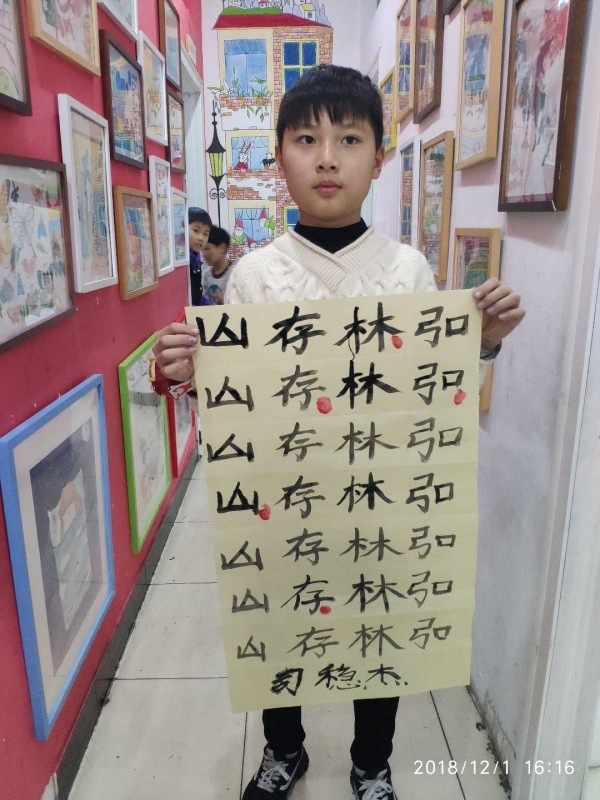 山存林弘
山存林弘
山存林弘
山存林弘
山存林弘
山存林弘
山存林弘
稳杰
2018/12/1 16:16